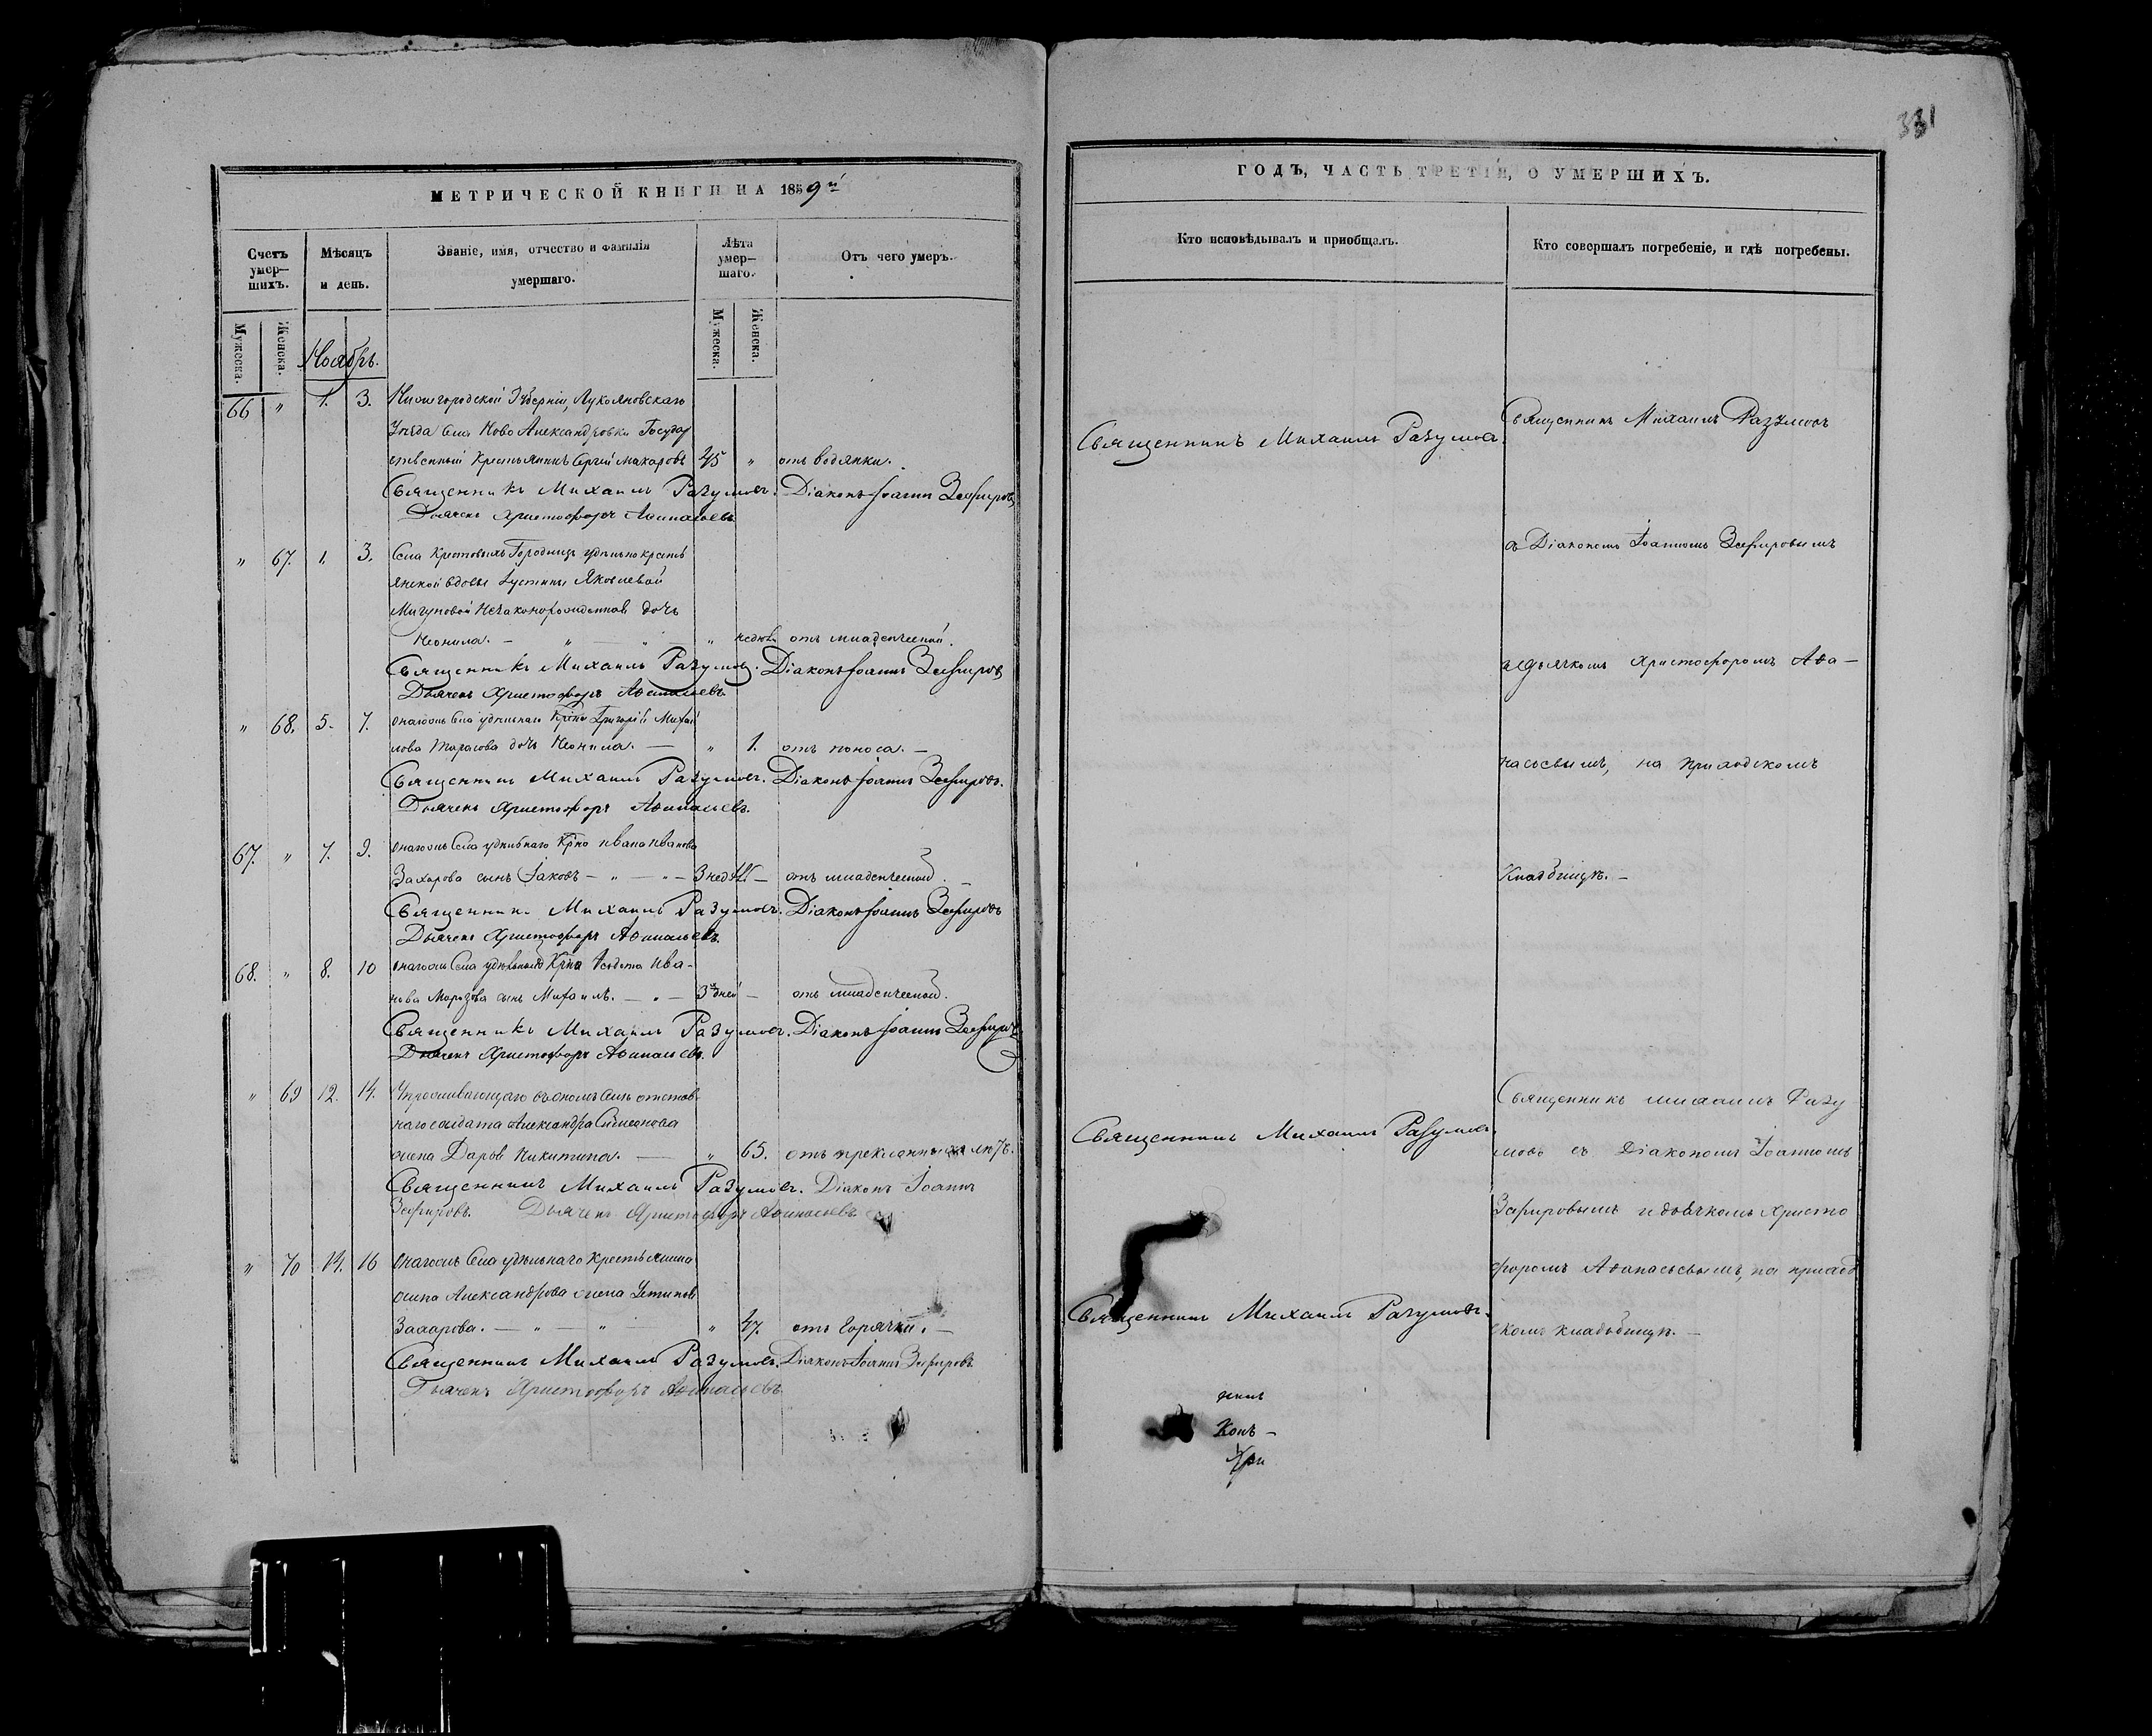 331
МЕТРИЧЕСКОЙ КНИГИ НА 1859й
Счетъ умер–шихъ.
Мѣсяцъ и день.
Званіе, имя, отчество и фамилія умершаго.
Лѣта умер–шаго.
Отъ чего умеръ.
Мужеска.
Женска.
Мужеска.
Женска.
Ноябрь.
66 „ 1. 3. Нижегородской Губерніи, Лукояновскаго
Уѣзда Села Ново Александровки Государ
ственный Крестьянинъ Сергій Макаровъ 45 „ отъ водянки.
Священникъ Михаилъ Разумовъ. Діаконъ Іоаннъ Зефировъ
Дьячекъ Христофоръ Аѳанасьевъ.
„ 67. 1. 3. Села Крестовыхъ Городищъ удѣльно крестъ
янской вдовы Іустины Яковлевой
Мигуновой Незаконорожденная дочь
Неонила. — „ — „ — „ отъ младенческой.
Священникъ Михаилъ Разумовъ. Діаконъ Іоаннъ Зефировъ
Дьячекъ Христофоръ Аѳанасьевъ.
„ 68. 5. 7. Онагожъ Села удѣльнаго Крна Григорій Михай
лова Тарасова дочь Неонила. — „ 1. отъ поноса. —
Священникъ Михаилъ Разумовъ. Діаконъ Іоаннъ Зефировъ.
Дьячекъ Христофоръ Аѳанасьевъ.
67. „ 7. 9. Онагожъ Села удѣльнаго Крна Ивана Иванова
Захарова сынъ Іаковъ — „ — „ — 3 недѣл. — отъ младенческой.
Священникъ Михаилъ Разумовъ. Діаконъ Іоаннъ Зефировъ
Дьячекъ Христофоръ Аѳанасьевъ.
68. „ 8. 10 Онагожъ Села удѣльнаго Крна Ива–
нова Морозова сынъ Михаилъ. — „ — 3 дней — отъ младенческой.
Священникъ Михаилъ Разумовъ. Діаконъ Іоаннъ Зефировъ
Дьячекъ Христофоръ Аѳанасьевъ.
„ 69 12. 14. Проживающаго въ ономъ селѣ отстав–
наго солдата Александра Симеонова
жена Дарья Никитина. — „ 65. отъ преклонныхъ лѣтъ.
Священникъ Михаилъ Разумовъ. Діаконъ Іоаннъ
Зефировъ. Дьячекъ Христофоръ Аѳанасьевъ
„ 70 14. 16 Онагожъ Села удѣльнаго Крестьянина
Александрова жена
Захарова. — „ — „ — „ 47. отъ Горячки. —
Священникъ Михаилъ Разумовъ. Діаконъ Іоаннъ Зефировъ
Дьячекъ Христофоръ Аѳанасьевъ
ГОДЪ, ЧАСТЬ ТРЕТІЯ, О УМЕРШИХЪ.
Кто исповѣдывалъ и приобщалъ.
Кто совершалъ погребеніе, и гдѣ погребены.
Священникъ Михаилъ Разумовъ
Священникъ Михаилъ Разумовъ
съ Діакономъ Іоанномъ Зефировымъ
и дьячкомъ Христофоромъ Аѳа—
насьевымъ, на приходскомъ
Кладбищѣ. —
Священникъ Михаилъ Разумовъ.
Священникъ Михаилъ Разу
мовъ съ Діакономъ Іоанномъ
Зефировымъ и дьячкомъ Христо
форомъ Аѳанасьевымъ, на приход
скомъ кладбищѣ. —
Священникъ Михаилъ Разумовъ.
Конъ –